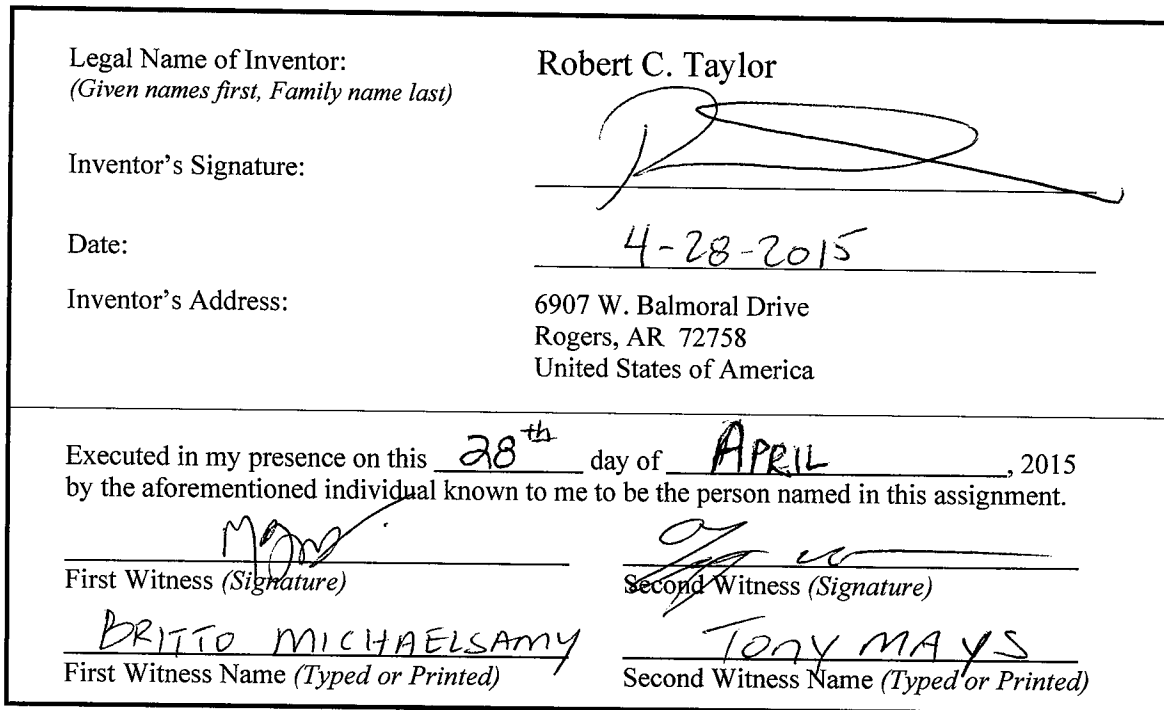 Legal Name of Inventor: Robert C. Taylor
(Given names first, Family name last)
Inventor's Signature:
Date: 4-28-2015
Inventor's Address: 6907 W. Balmoral Drive
Rogers, AR 72758
United States of America
Executed in my presence on this 28th day of APRIL, 2015
by the aforementioned individual known to me to be the person named in this assignment.
First Witness (Signature) Second Witness (Signature)
BRITTO MICHAELSAMY TONY MAYS
First Witness Name (Typed or Printed) Second Witness Name (Typed or Printed)